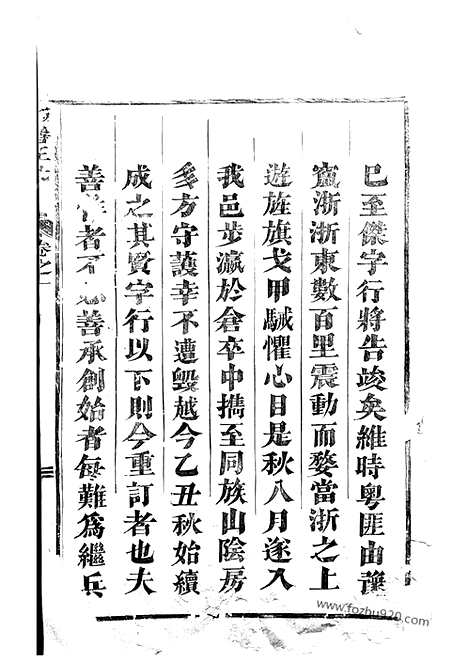 已至傑字行將告竣矣維時粵匪由豫
竄浙浙東數百里震動而婺當浙之上
遊旌旗戈甲駴懼心目是秋八月遂入
我邑步瀛於倉卒中擕至同族山陰房
多方守護幸不遭毀越今乙丑秋始續
成之其賢字行以下則今重訂者也夫
善作者不善承創始者每難爲繼兵
卷之一
www.fozhu920.com